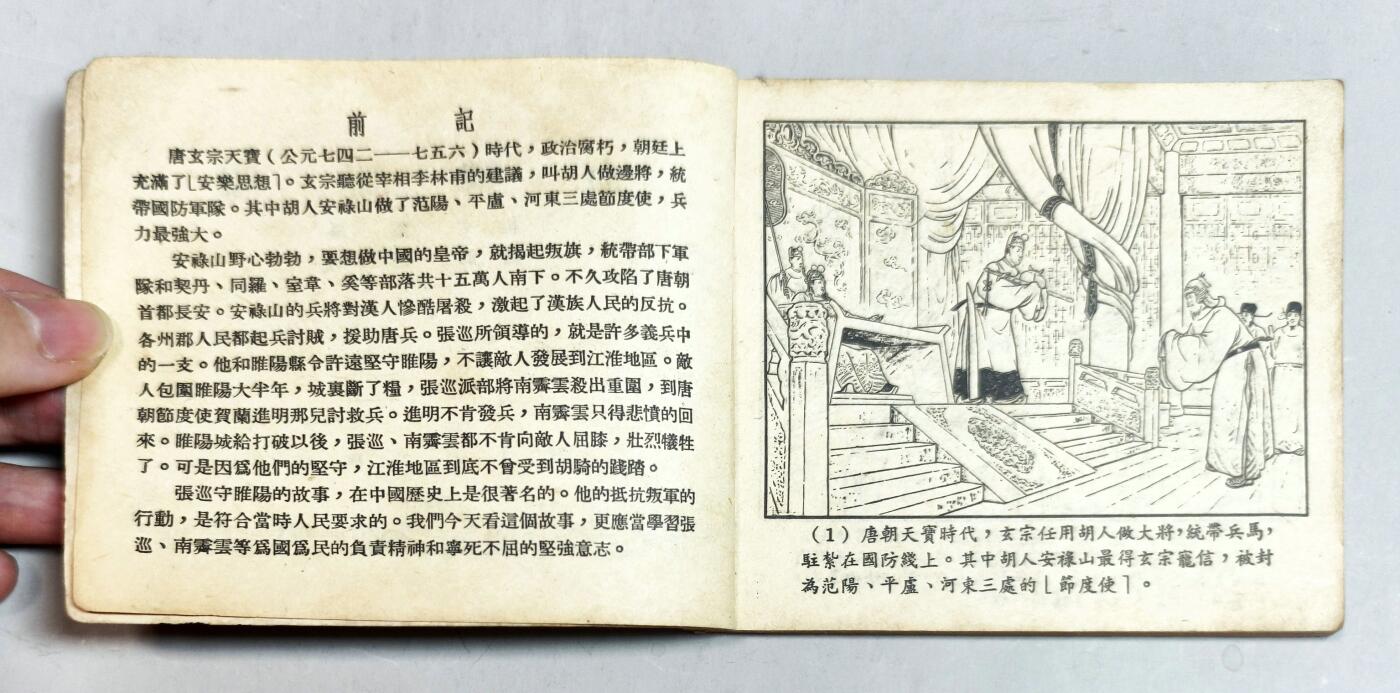 前 記
唐玄宗天寶(公元七四二——七五六)時代,政治腐朽,朝廷上
充滿了⌊安樂思想⌉。玄宗聽從宰相李林甫的建議,叫胡人做邊將,統
帶國防軍隊。其中胡人安祿山做了范陽、平盧、河東三處節度使,兵
力最強大。
安祿山野心勃勃,要想做中國的皇帝,就揭起叛旗,統帶部下軍
隊和契丹、同羅、室韋、奚等部落共十五萬人南下。不久攻陷了唐朝
首都長安。安祿山的兵將對漢人慘酷屠殺,激起了漢族人民的反抗。
各州郡人民都起兵討賊,援助唐兵。張巡所領導的,就是許多義兵中
的一支。他和睢陽縣令許遠堅守睢陽,不讓敵人發展到江淮地區。敵
人包圍睢陽大半年,城裏斷了糧,張巡派部將南霽雲殺出重圍,到唐
朝節度使賀蘭進明那兒討救兵。進明不肯發兵,南霽雲只得悲憤的回
來。睢陽城給打破以後,張巡、南霽雲都不肯向敵人屈膝,壯烈犧牲
了。可是因爲他們的堅守,江淮地區到底不曾受到胡騎的踐踏。
張巡守睢陽的故事,在中國歷史上是很著名的。他的抵抗叛軍的
行動,是符合當時人民要求的。我們今天看這個故事,更應當學習張
巡、南霽雲等爲國爲民的負責精神和寧死不屈的堅強意志。
(1)唐朝天寶時代,玄宗任用胡人做大將,統帶兵馬,
駐紮在國防綫上。其中胡人安祿山最得玄宗寵信,被封
為范陽、平盧、河東三處的⌊節度使⌉。